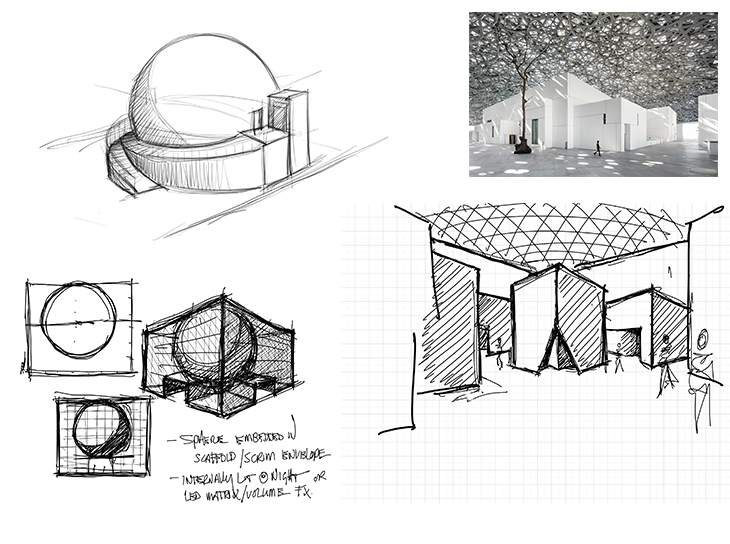 - SPHERE EMBEDDED IN
SCAFFOLD/SCRIM ENVELOPE
- INTERNALLY LIT @ NIGHT OR
LED MATRIX/VOLUME FX.